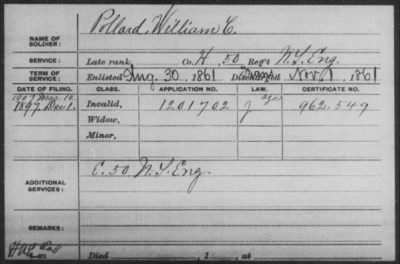 Pollard, William C.
NAME OF SOLDIER:
SERVICE: Late rank, Co. H, 50 Reg't N.Y. Eng.
TERM OF SERVICE: Enlisted Aug. 30, 1861 Discharged Nov. 1, 1861
DATE OF FILING. CLASS. APPLICATION NO. LAW. CERTIFICATE NO.
1897 Dec 1. Invalid, 1201702 962.549
Widow,
Minor,
ADDITIONAL SERVICES: C. 50 N.Y. Eng.
REMARKS:
Died , 1 , at